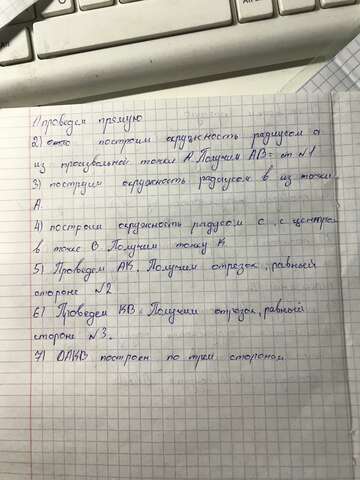 1) проведем прямую
2) построим окружность радиусом a
из произвольной точки A. Получим AB = от N1
3) построим окружность радиусом в из точки
A
4) построим окружность радиусом c, с центром
в точке B. Получим точку K.
5) Проведем AK. Получим отрезок, равный
стороне N2
6) Проведем KB. Получим отрезок, равный
стороне N3.
7) ΔAKB построен по трем сторонам